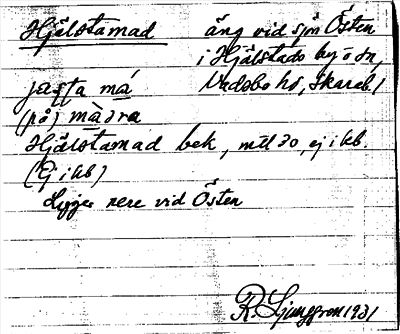 Hjälstamad äng vid sjön Östen
i Hjälstads by o sn,
Vadsbo hd, Skarab. l
jasta má
(på) màdra
Hjälstamad bek, mtl do, ej i kb.
(Ej i kb)
Ligger nere vid Östen
R. Ljunggren 1931